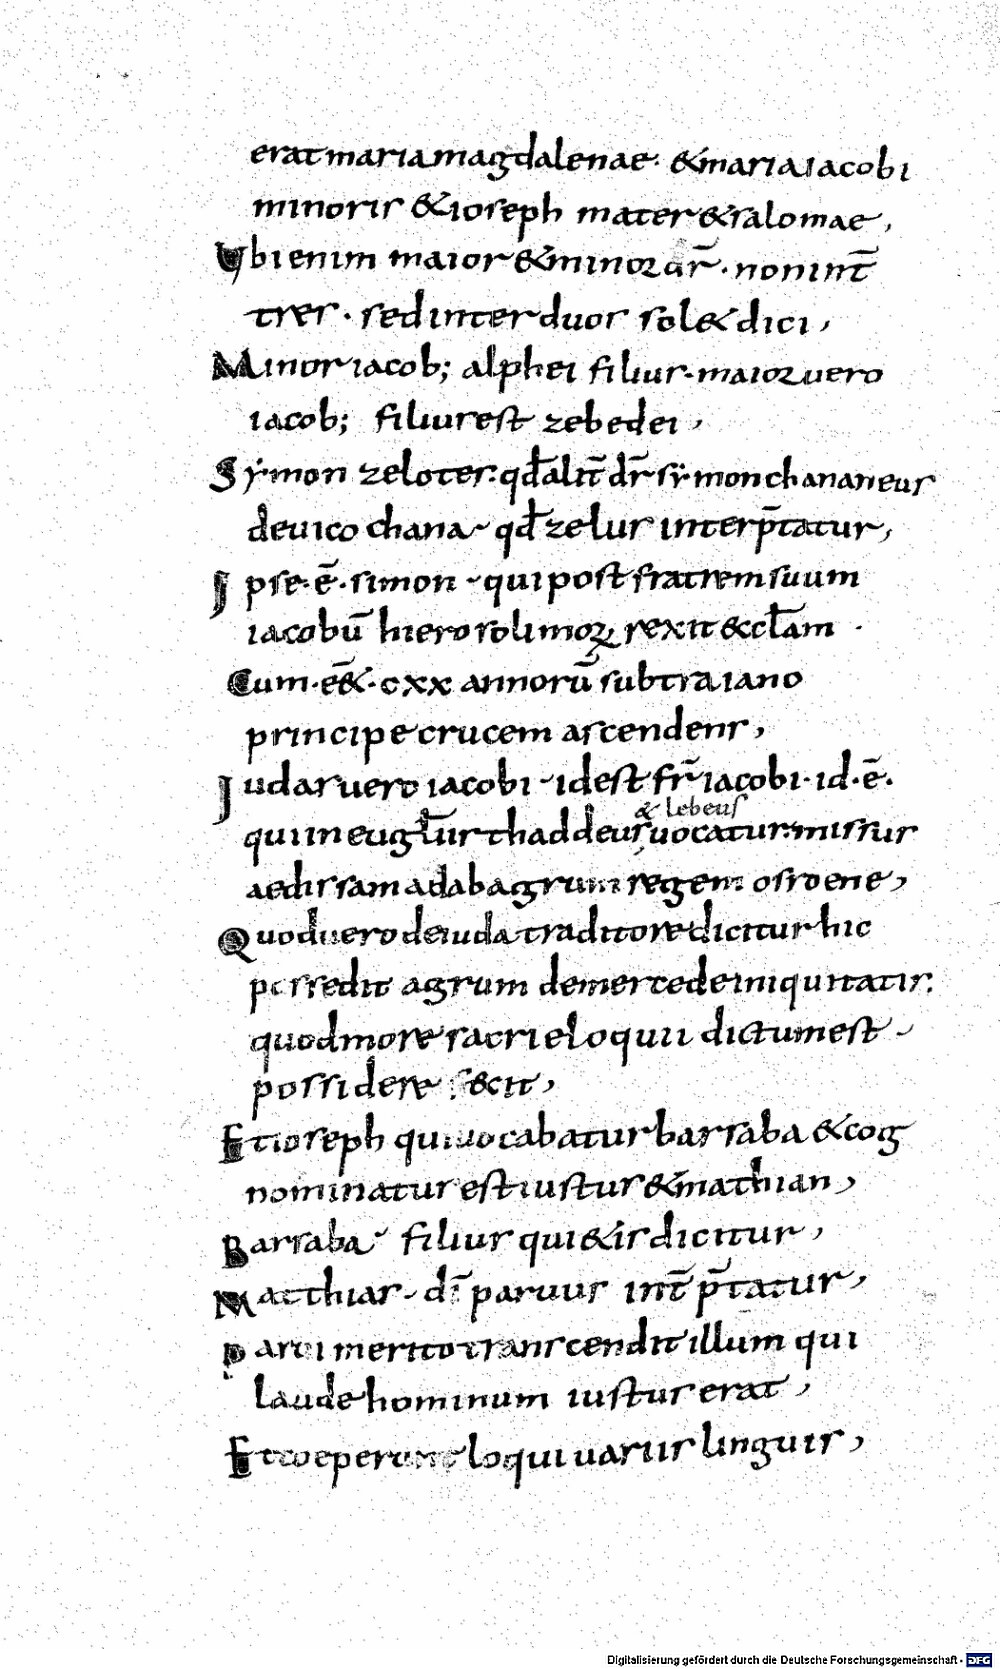 erat maria magdalenae · & maria iacobi
minoris & ioseph mater & salomae ,
Ubi enim maior & minor dr̄ · non int̄
tres · sed inter duos sol& dici ,
Minor iacob; alphei filius · maior uero
iacob; filius est zebedei ,
Symon zelotes · qđ alit̄ dr̄ symon chananeus
de uico chana · qđ zelus interp̄tatur ,
Ipse · ē · simon · qui post fratrem suum
iacobū hierosolimoꝝ rexit ecłam ·
Cum · ē& · cxx annorū sub traiano
principe crucem ascendens ,
Iudas uero iacobi · id est fr̄ iacobi · id · ē ·
& lebeus
qui in euglīis thaddeus uocatur · missus
aedissam ad abagrum regem osroene ,
Quod uero de iuda traditore dicitur hic
possedit agrum de mercede iniquitatis :
quod more sacri eloquii dictum est ·
possidere fecit ,
Et ioseph qui uocabatur barsaba & cog
nominatur est iustus & mathian ,
Barsaba filius qui&is dicitur ,
Matthias · dī paruus int̄p̄tatur ,
Parui merito transcendit illum qui
laude hominum iustus erat ,
Et coeperunt loqui uariis linguis ,
Digitalisierung gefördert durch die Deutsche Forschungsgemeinschaft - DFG